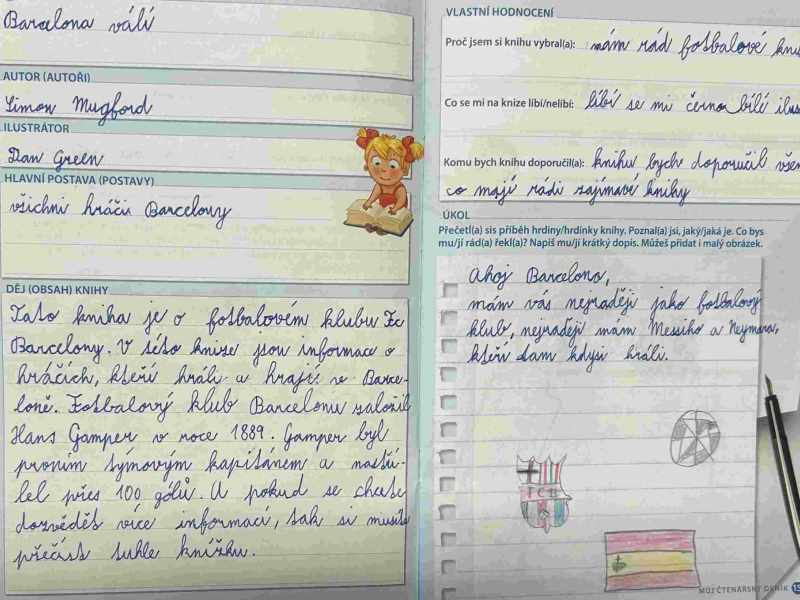 Barcelona válí
AUTOR (AUTOŘI)
Simon Mugford
ILUSTRÁTOR
Dan Green
HLAVNÍ POSTAVA (POSTAVY)
všichni hráči Barcelony
DĚJ (OBSAH) KNIHY
Tato kniha je o fotbalovém klubu Fc
Barcelony. V této knize jsou informace o
hráčích, kteří hráli a hrají ve Barce-
loně. Fotbalový klub Barcelonu založil
Hans Gamper v roce 1889. Gamper byl
prvním týmovým kapitánem a nastří-
lel přes 100 gólů. A pokud se chcete
dozvědět více informací, tak si musíte
přečíst tuhle knížku.
VLASTNÍ HODNOCENÍ
Proč jsem si knihu vybral(a): mám rád fotbalové
Co se mi na knize líbí/nelíbí: líbí se mi černo bílé
Komu bych knihu doporučil(a): knihu bych doporučil
co mají rádi zajímavé knihy
ÚKOL
Přečetl(a) sis příběh hrdiny/hrdinky knihy. Poznal(a) jsi, jaký/jaká je. Co bys
mu/jí rád(a) řekl(a)? Napiš mu/jí krátký dopis. Můžeš přidat i malý obrázek.
Ahoj Barcelono,
mám vás nejraději jako fotbalový
klub, nejraději mám Messiho a Neymara,
kteří tam kdysi hráli.
FCB
MŮJ ČTENÁŘSKÝ DENÍK